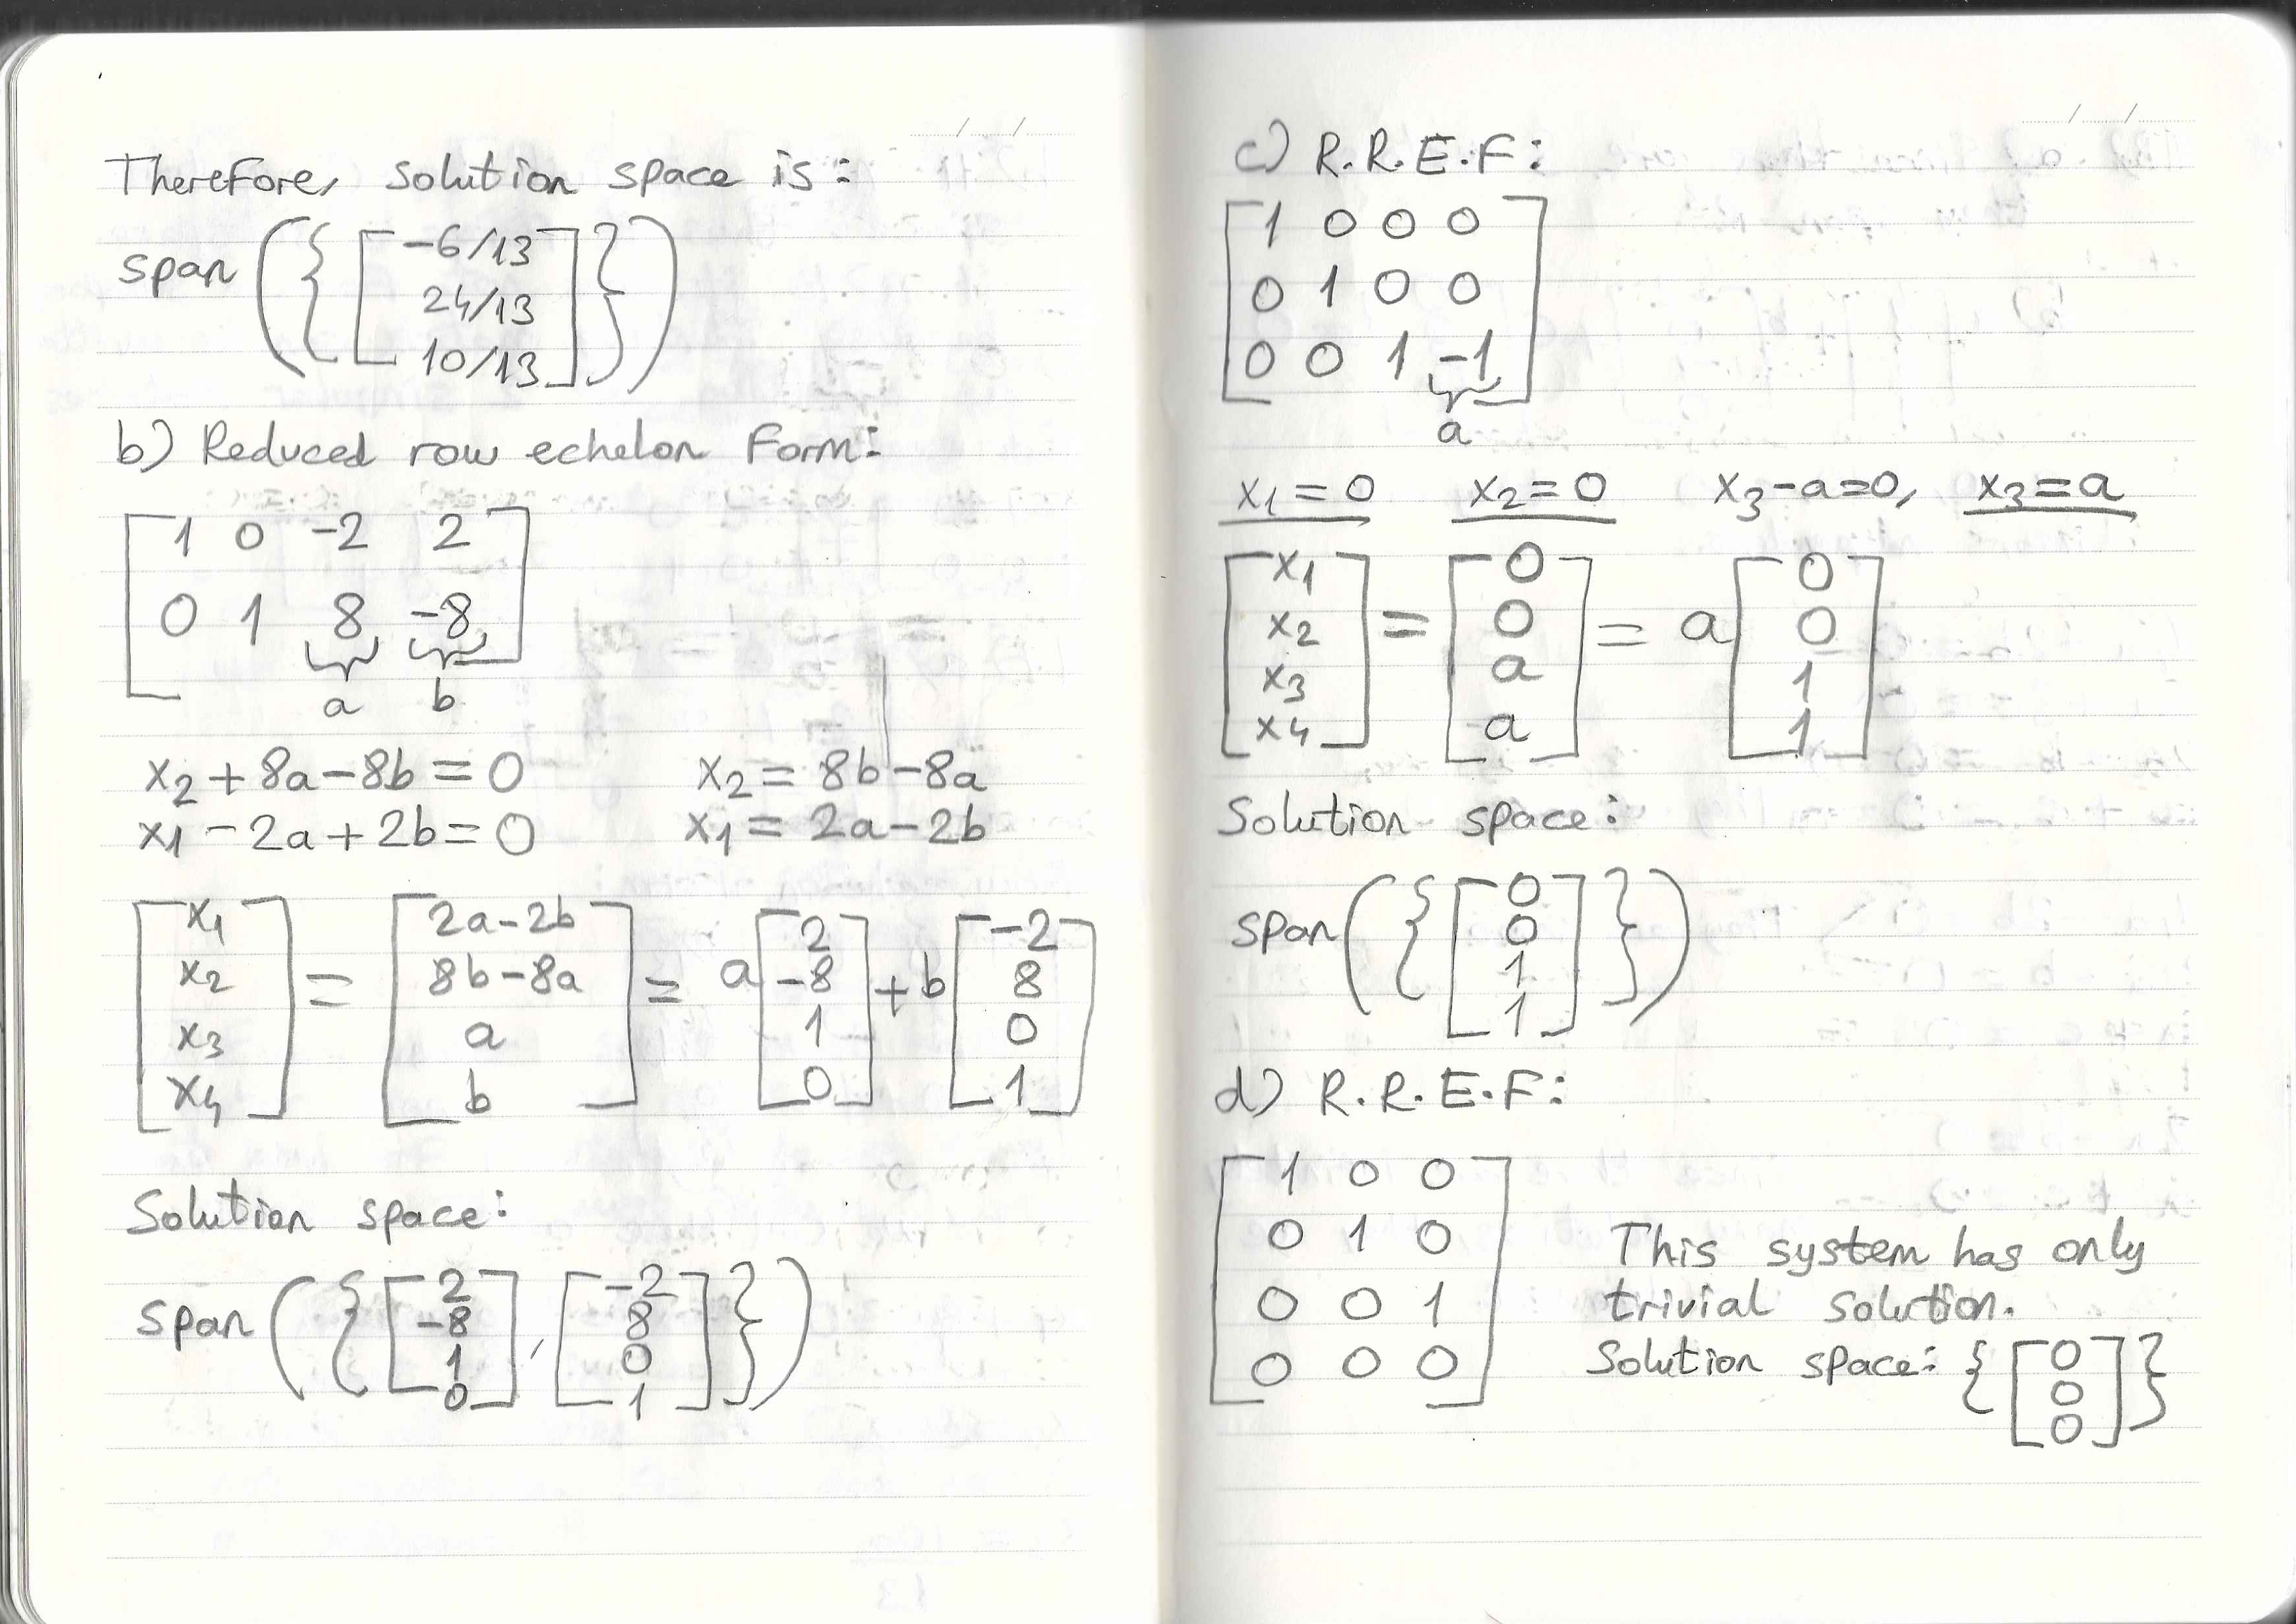 Therefore, solution space is:
span ( { [ -6/13
24/13
10/13 ] } )
b) Reduced row echelon form:
[ 1 0 -2 2
0 1 8 -8 ]
a b
x2 + 8a - 8b = 0 x2 = 8b - 8a
x1 - 2a + 2b = 0 x1 = 2a - 2b
[ x1 ] = [ 2a - 2b ] = a [ 2 ] + b [ -2 ]
[ x2 ] [ 8b - 8a ] [ -8 ] [ 8 ]
[ x3 ] [ a ] [ 1 ] [ 0 ]
[ x4 ] [ b ] [ 0 ] [ 1 ]
Solution space:
span ( { [ 2 ] , [ -2 ] } )
[ -8 ] [ 8 ]
[ 1 ] [ 0 ]
[ 0 ] [ 1 ]
c) R.R.E.F:
[ 1 0 0 0
0 1 0 0
0 0 1 -1 ]
a
x1 = 0 x2 = 0 x3 - a = 0, x3 = a
[ x1 ] = [ 0 ] = a [ 0 ]
[ x2 ] [ 0 ] [ 0 ]
[ x3 ] [ a ] [ 1 ]
[ x4 ] [ a ] [ 1 ]
Solution space:
span ( { [ 0
0
1
1 ] } )
d) R.R.E.F:
[ 1 0 0
0 1 0
0 0 1
0 0 0 ]
This system has only
trivial solution.
Solution space: { [ 0
0
0 ] }